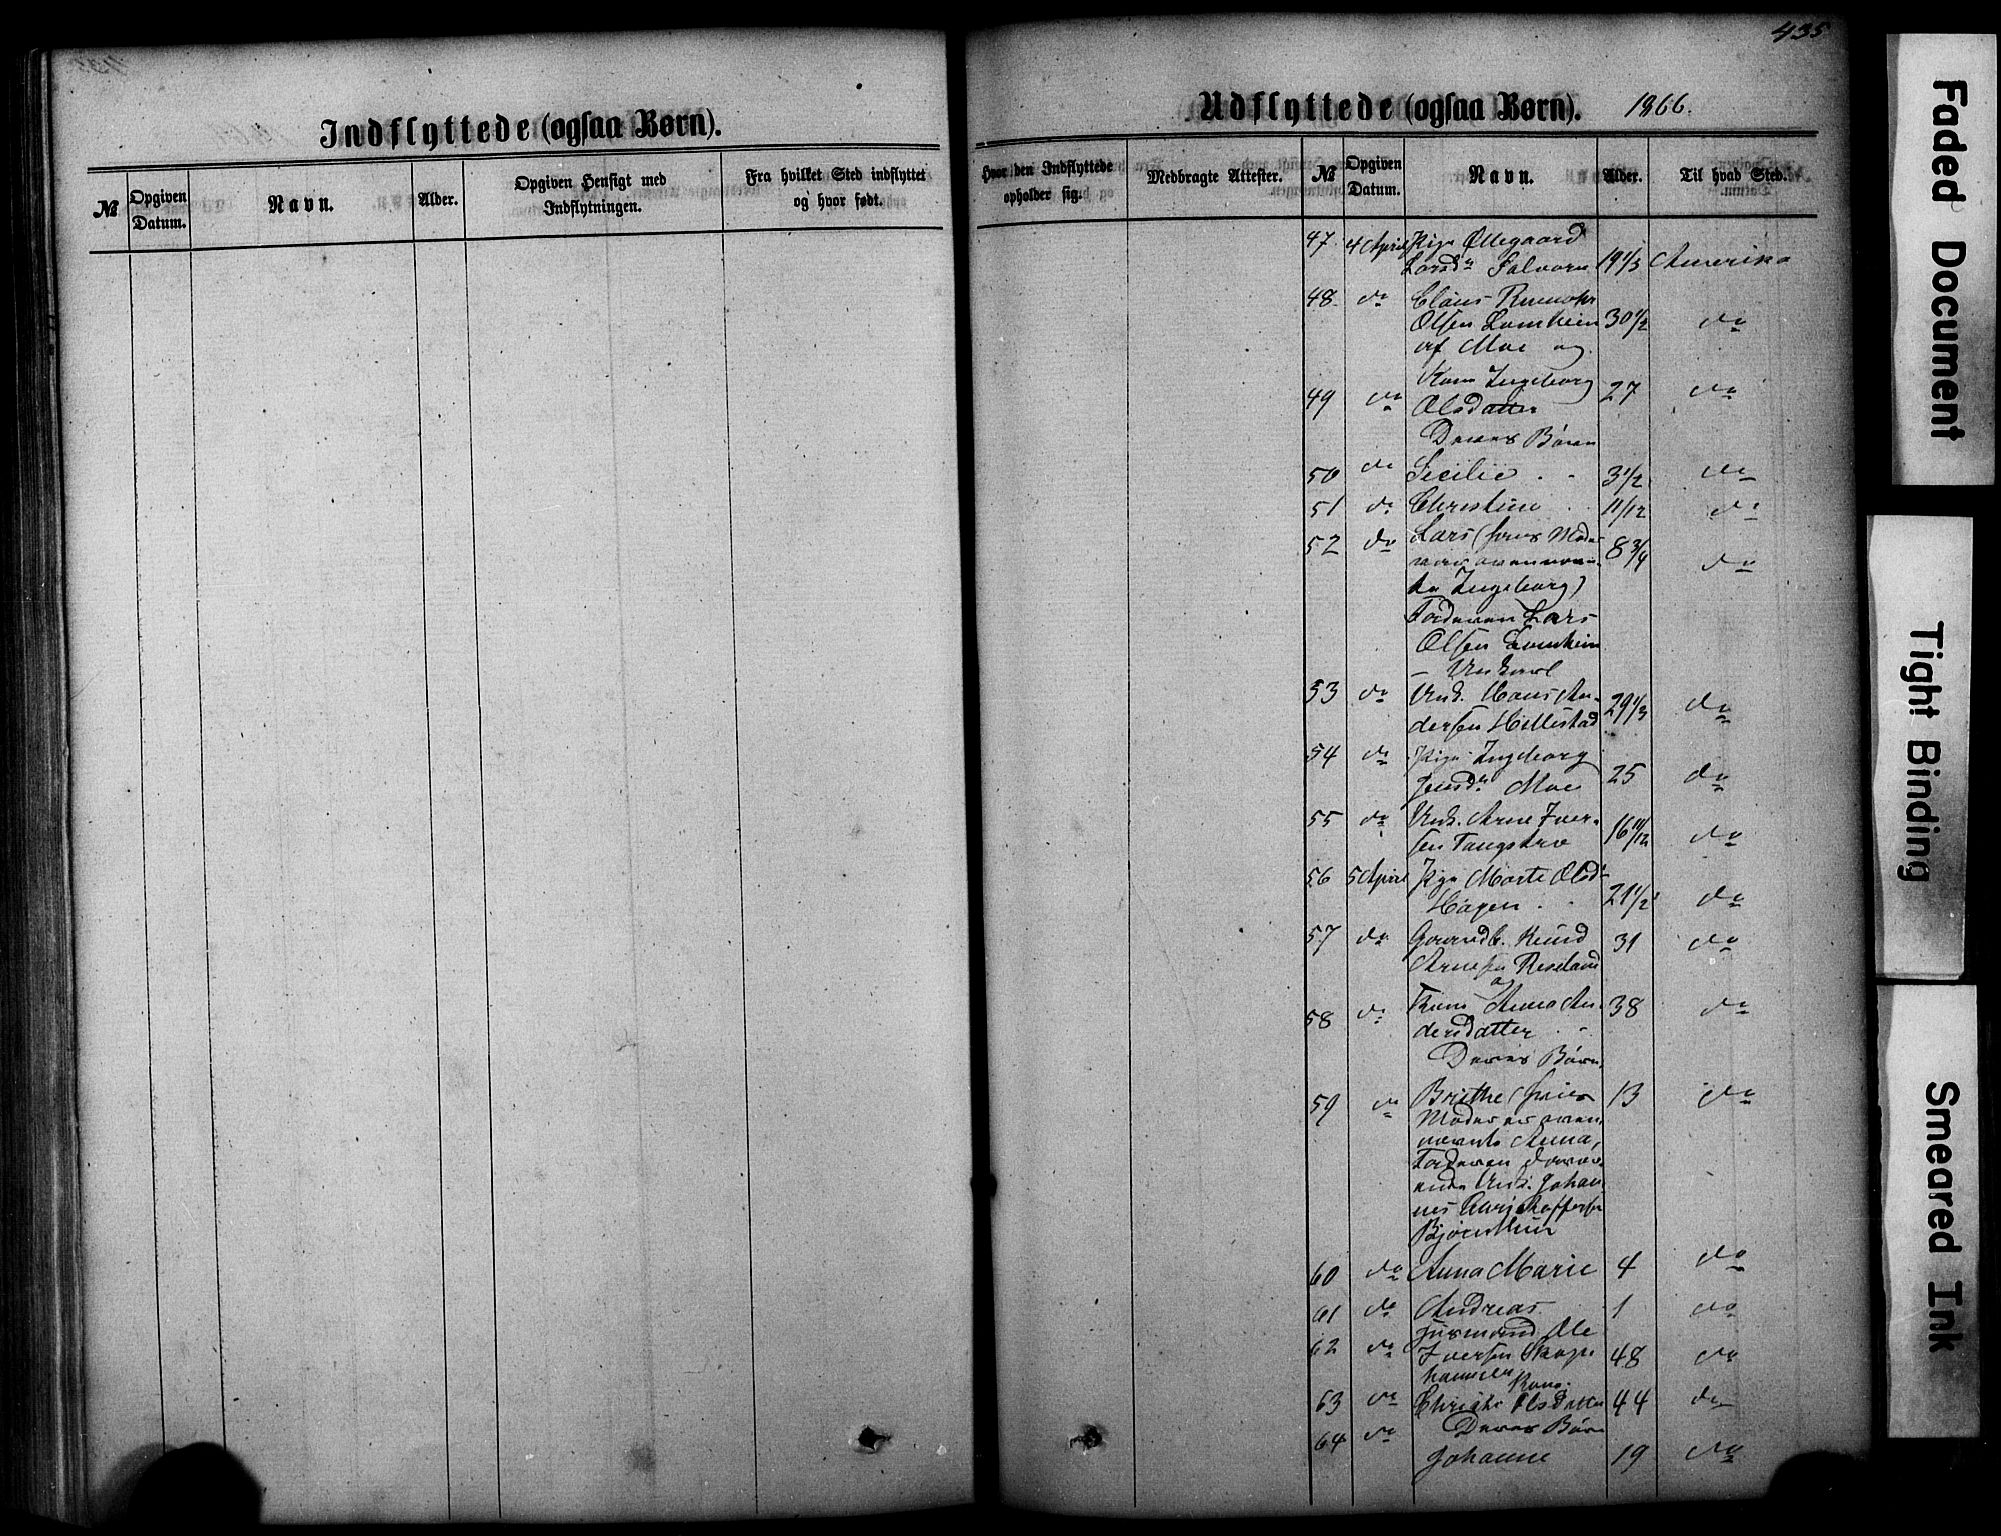 435
Indflyttede (ogsaa Børn).
№
Opgiven Datum.
Navn.
Alder.
Opgiven Hensigt med Indflytningen.
Fra hvilket Sted indflyttet og hvor født.
Udflyttede (ogsaa Børn). 1866.
Hvor den Indflyttede opholder sig.
Medbragte Attester.
№
Opgiven Datum.
Navn.
Alder.
Til hvad Sted.
47. 4 April Pige Ollegaard
Larsdr 19 1/3 Amerika
48. do Claus
Olsen Lomheim 30 1/2 do
af Moe og
Kone Ingeborg
49 do Olsdatter 27 do
Deres Børn
50 do Cecilie 3 1/2 do
51 do Christine 11/12 do
52 do Lars (hvis Moder 8 3/4 do
Ingeborg)
Faderen Lars
Olsen Lomheim
Unkarl
53 do Unk. Hans An-
dersen Hillestad 29 1/3 do
54 do Pige Ingeborg
Jensdr Moe 25 do
55 do Unk. Arne Iver-
sen 16 11/12 do
56 5 April Pige Marte Olsdr
Hagen 21 1/2 do
57 do Gaardb. Knud 31 do
Arnesen
og
58 do Kone Anna An- 38 do
dersdatter
Deres Børn
59 do Brithe (hvis 13 do
Moder er oven-
nævnte Anna,
Faderen
Unk. Johan-
nes
60 do Anna Marie 4 do
61 do Andreas 1 do
62 do Husmand Ole
Iversen 48 do
Kone
63 do Christi Olsdatter 44 do
Deres Børn
64 do Johanne 19 do
Faded Document
Tight Binding
Smeared Ink